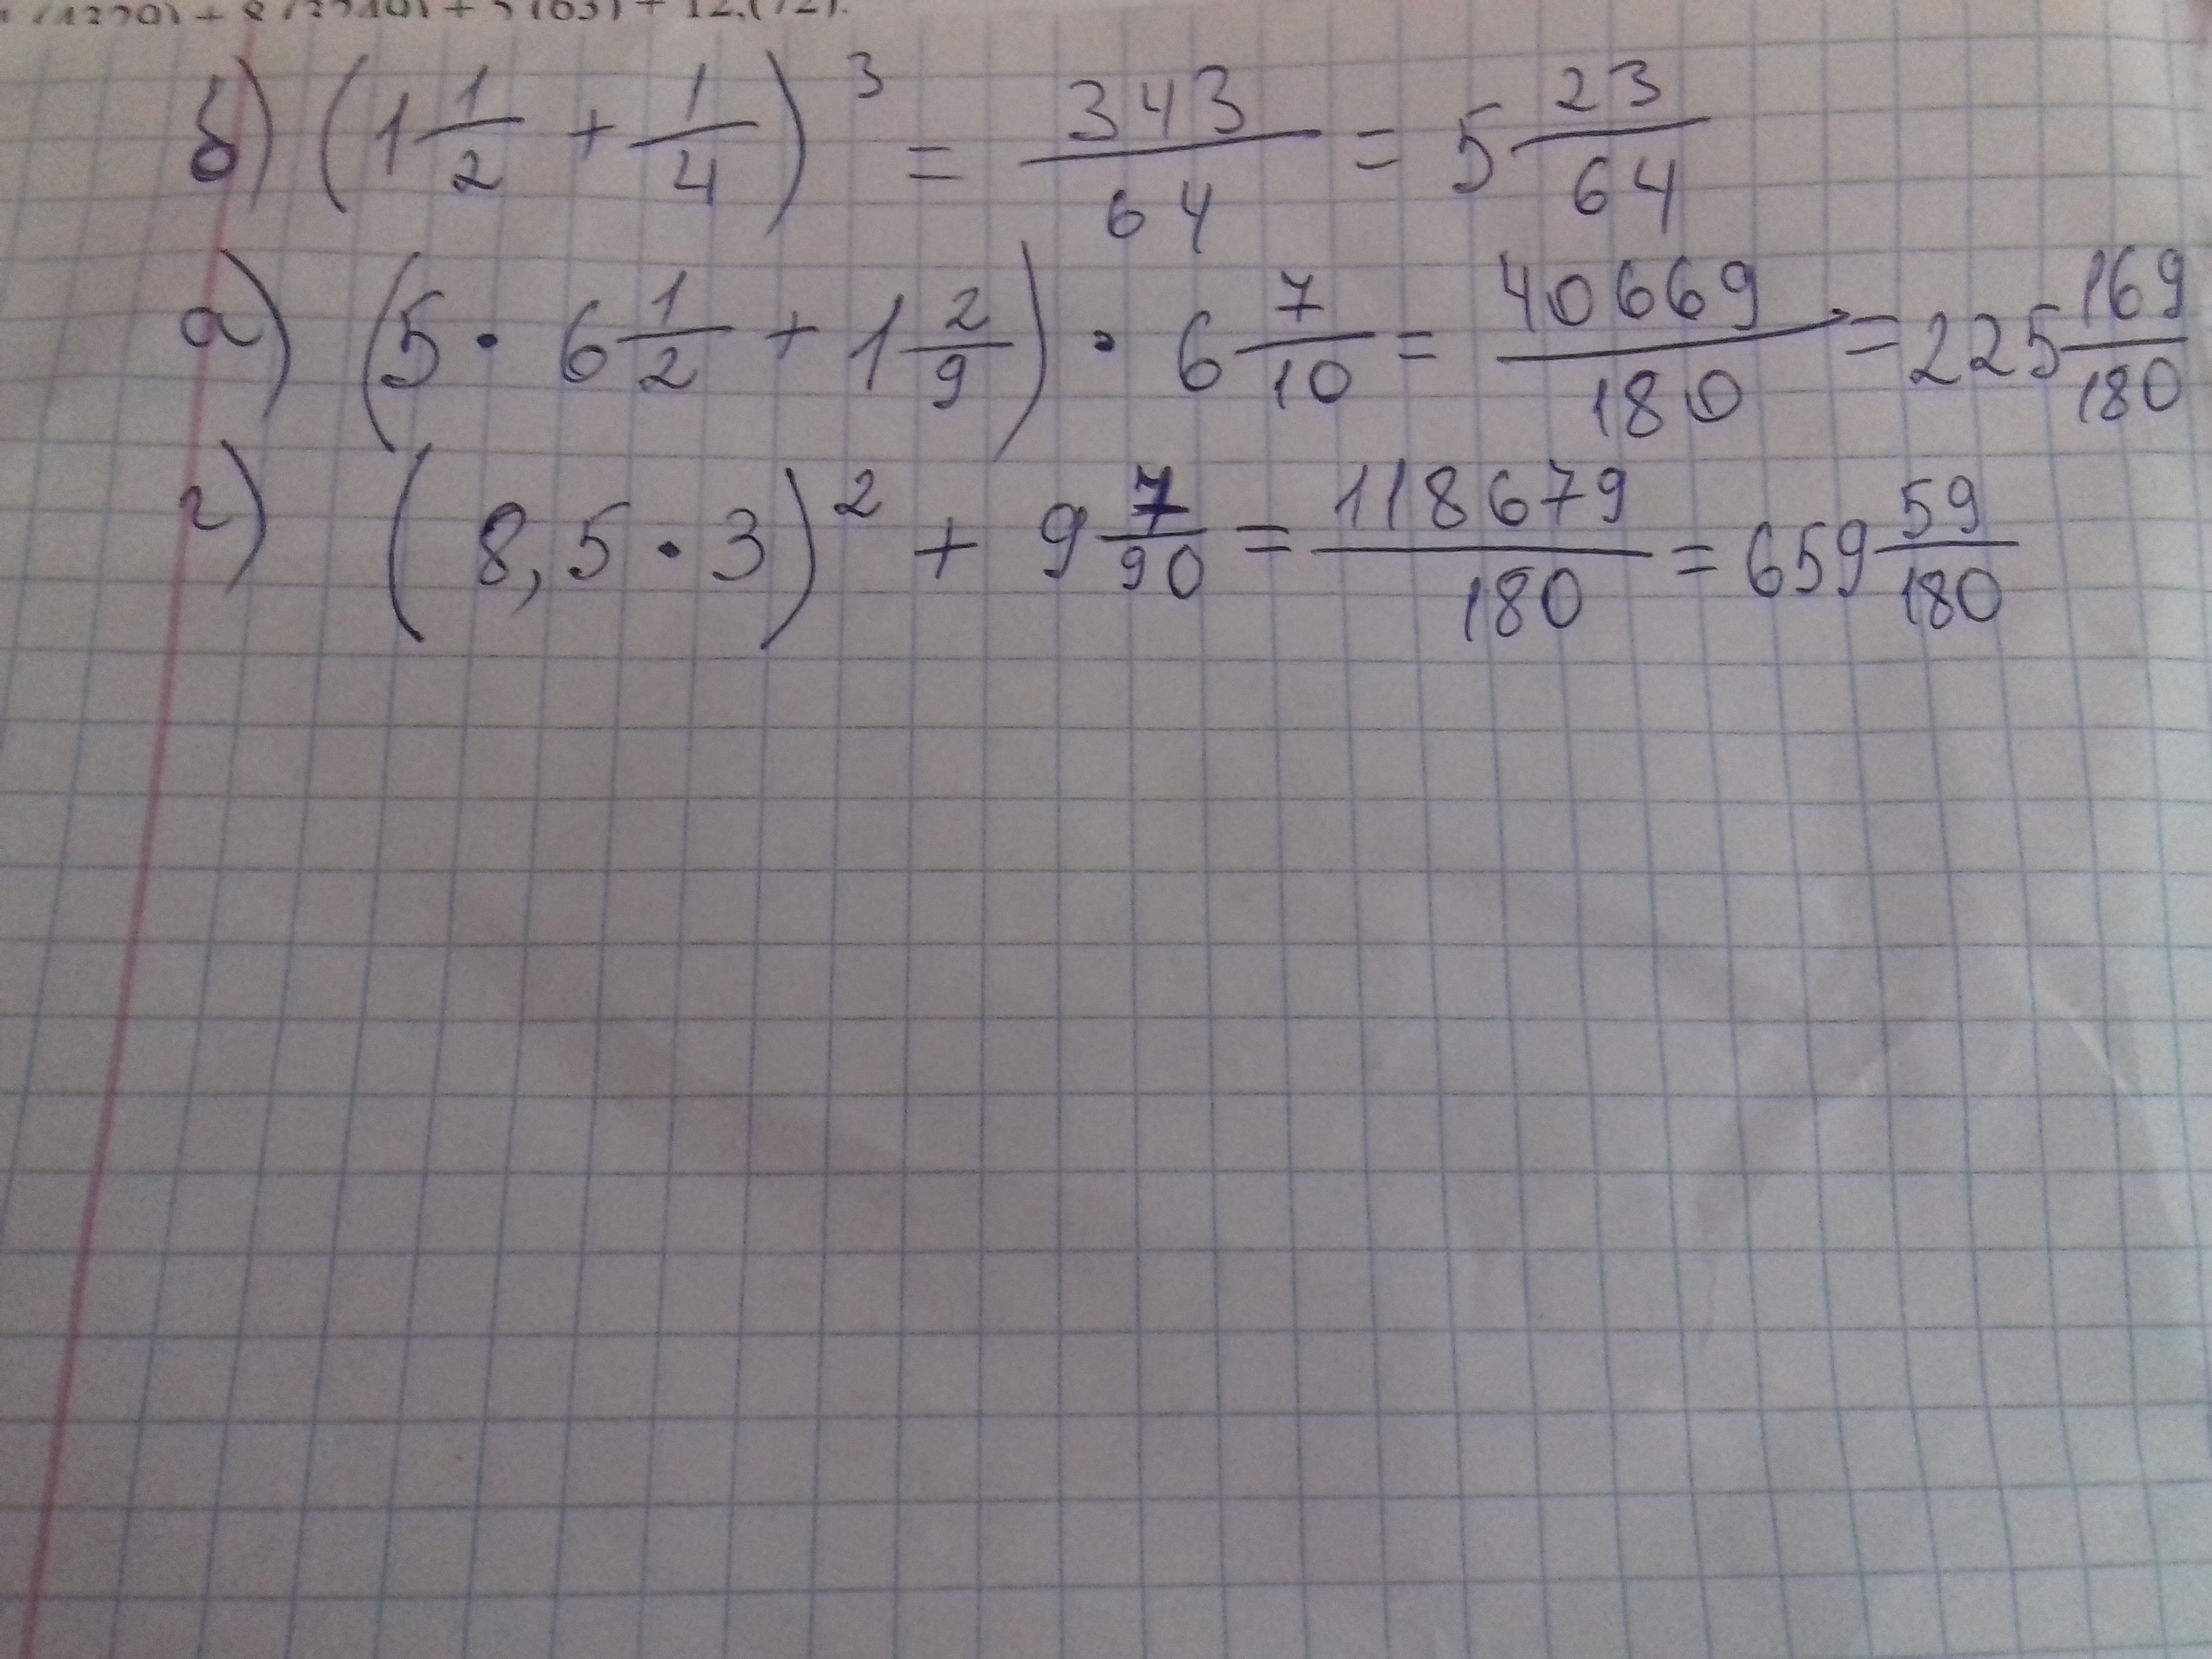 б) (1 1/2 + 1/4)³ = 343/64 = 5 23/64
а) (5 · 6 1/2 + 1 2/9) · 6 7/10 = 40669/180 = 225 169/180
г) (8,5 · 3)² + 9 7/90 = 118679/180 = 659 59/180